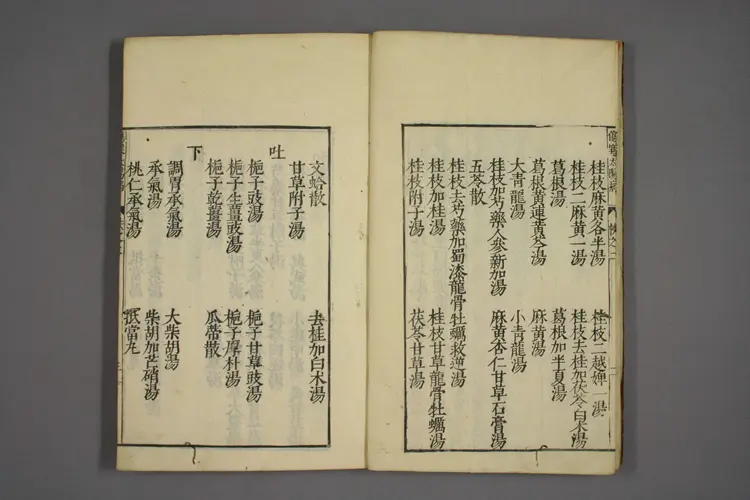 桂枝麻黃各半湯　桂枝二越婢一湯
桂枝二麻黃一湯　桂枝去桂加茯苓白朮湯
葛根湯　葛根加半夏湯
葛根黃連黃芩湯　麻黃湯
大青龍湯　小青龍湯
桂枝加芍藥人參新加湯　麻黃杏仁甘草石膏湯
五苓散
桂枝去芍藥加蜀漆龍骨牡蠣救逆湯
桂枝加桂湯　桂枝甘草龍骨牡蠣湯
桂枝附子湯　茯苓甘草湯
文蛤散　去桂加白朮湯
甘草附子湯
吐
梔子豉湯　梔子甘草豉湯
梔子生薑豉湯　梔子厚朴湯
梔子乾薑湯　瓜蒂散
下
調胃承氣湯　大柴胡湯
承氣湯　柴胡加芒硝湯
桃仁承氣湯　抵當丸